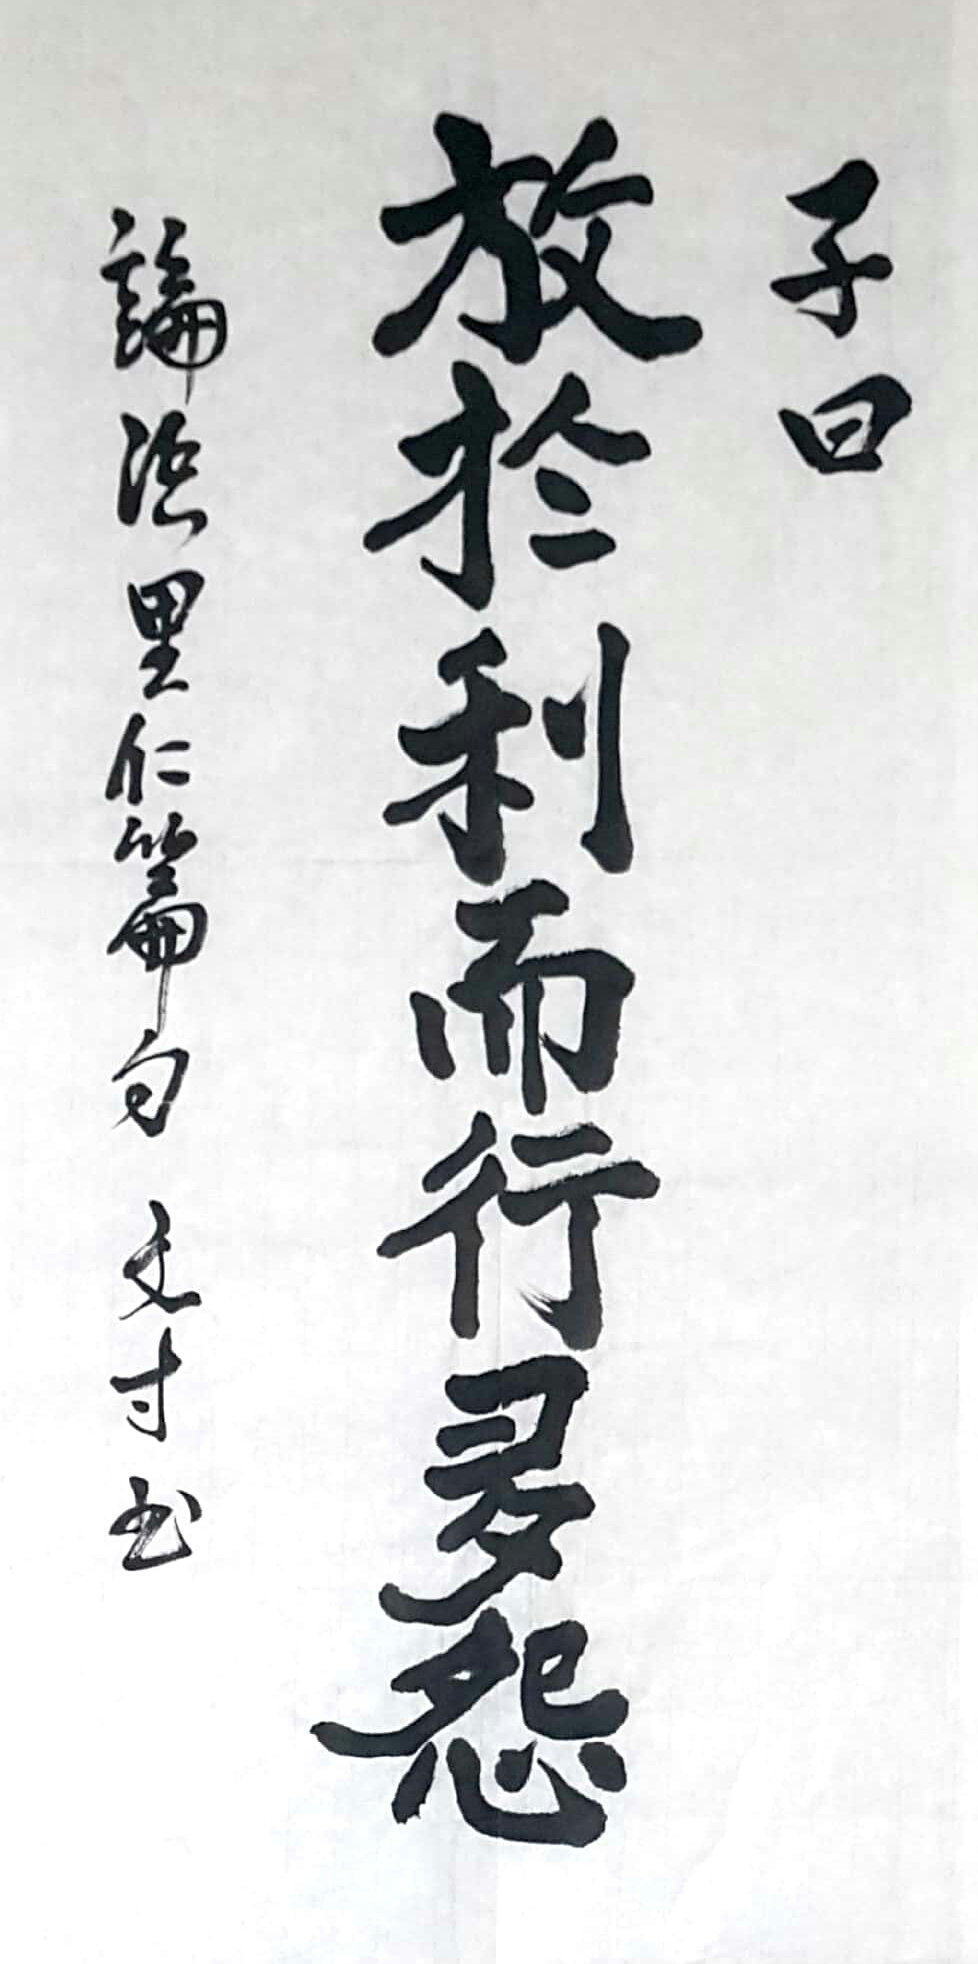 子曰
放於利而行多怨
論語里仁篇句 文寸书